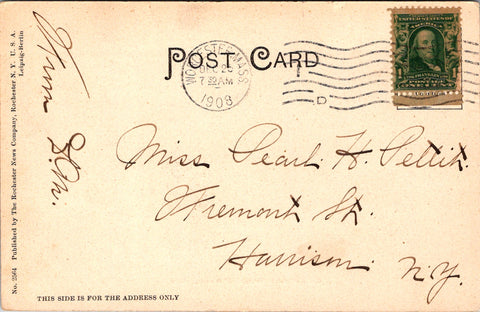 POST CARD
WORCESTER, MASS.
DEC 26
7 30 AM
1908
D
UNITED STATES OF AMERICA
FRANKLIN
1 ONE CENT 1
Miss Pearl H. Pettit.
Fremont St.
Harrison N.Y.
From
No. 2564 Published by The Rochester News Company, Rochester N. Y. U. S. A.
Leipzig-Berlin
THIS SIDE IS FOR THE ADDRESS ONLY